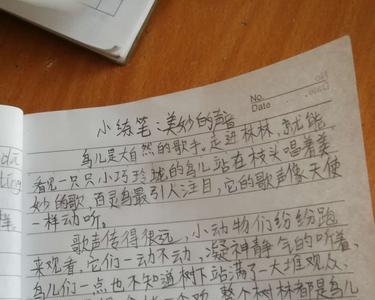 No.
Date
小练笔:美妙的声音
鸟儿是大自然的歌手。走进树林,就能
看见一只只小巧玲珑的鸟儿站在枝头唱着美
妙的歌,百灵鸟最引人注目,它的歌声像天使
一样动听。
歌声传得很远,小动物们纷纷跑
来观看,它们一动不动,凝神静气的听着,
鸟儿们一点也不知道树下站满了大堆观众,
整个树林都是鸟儿